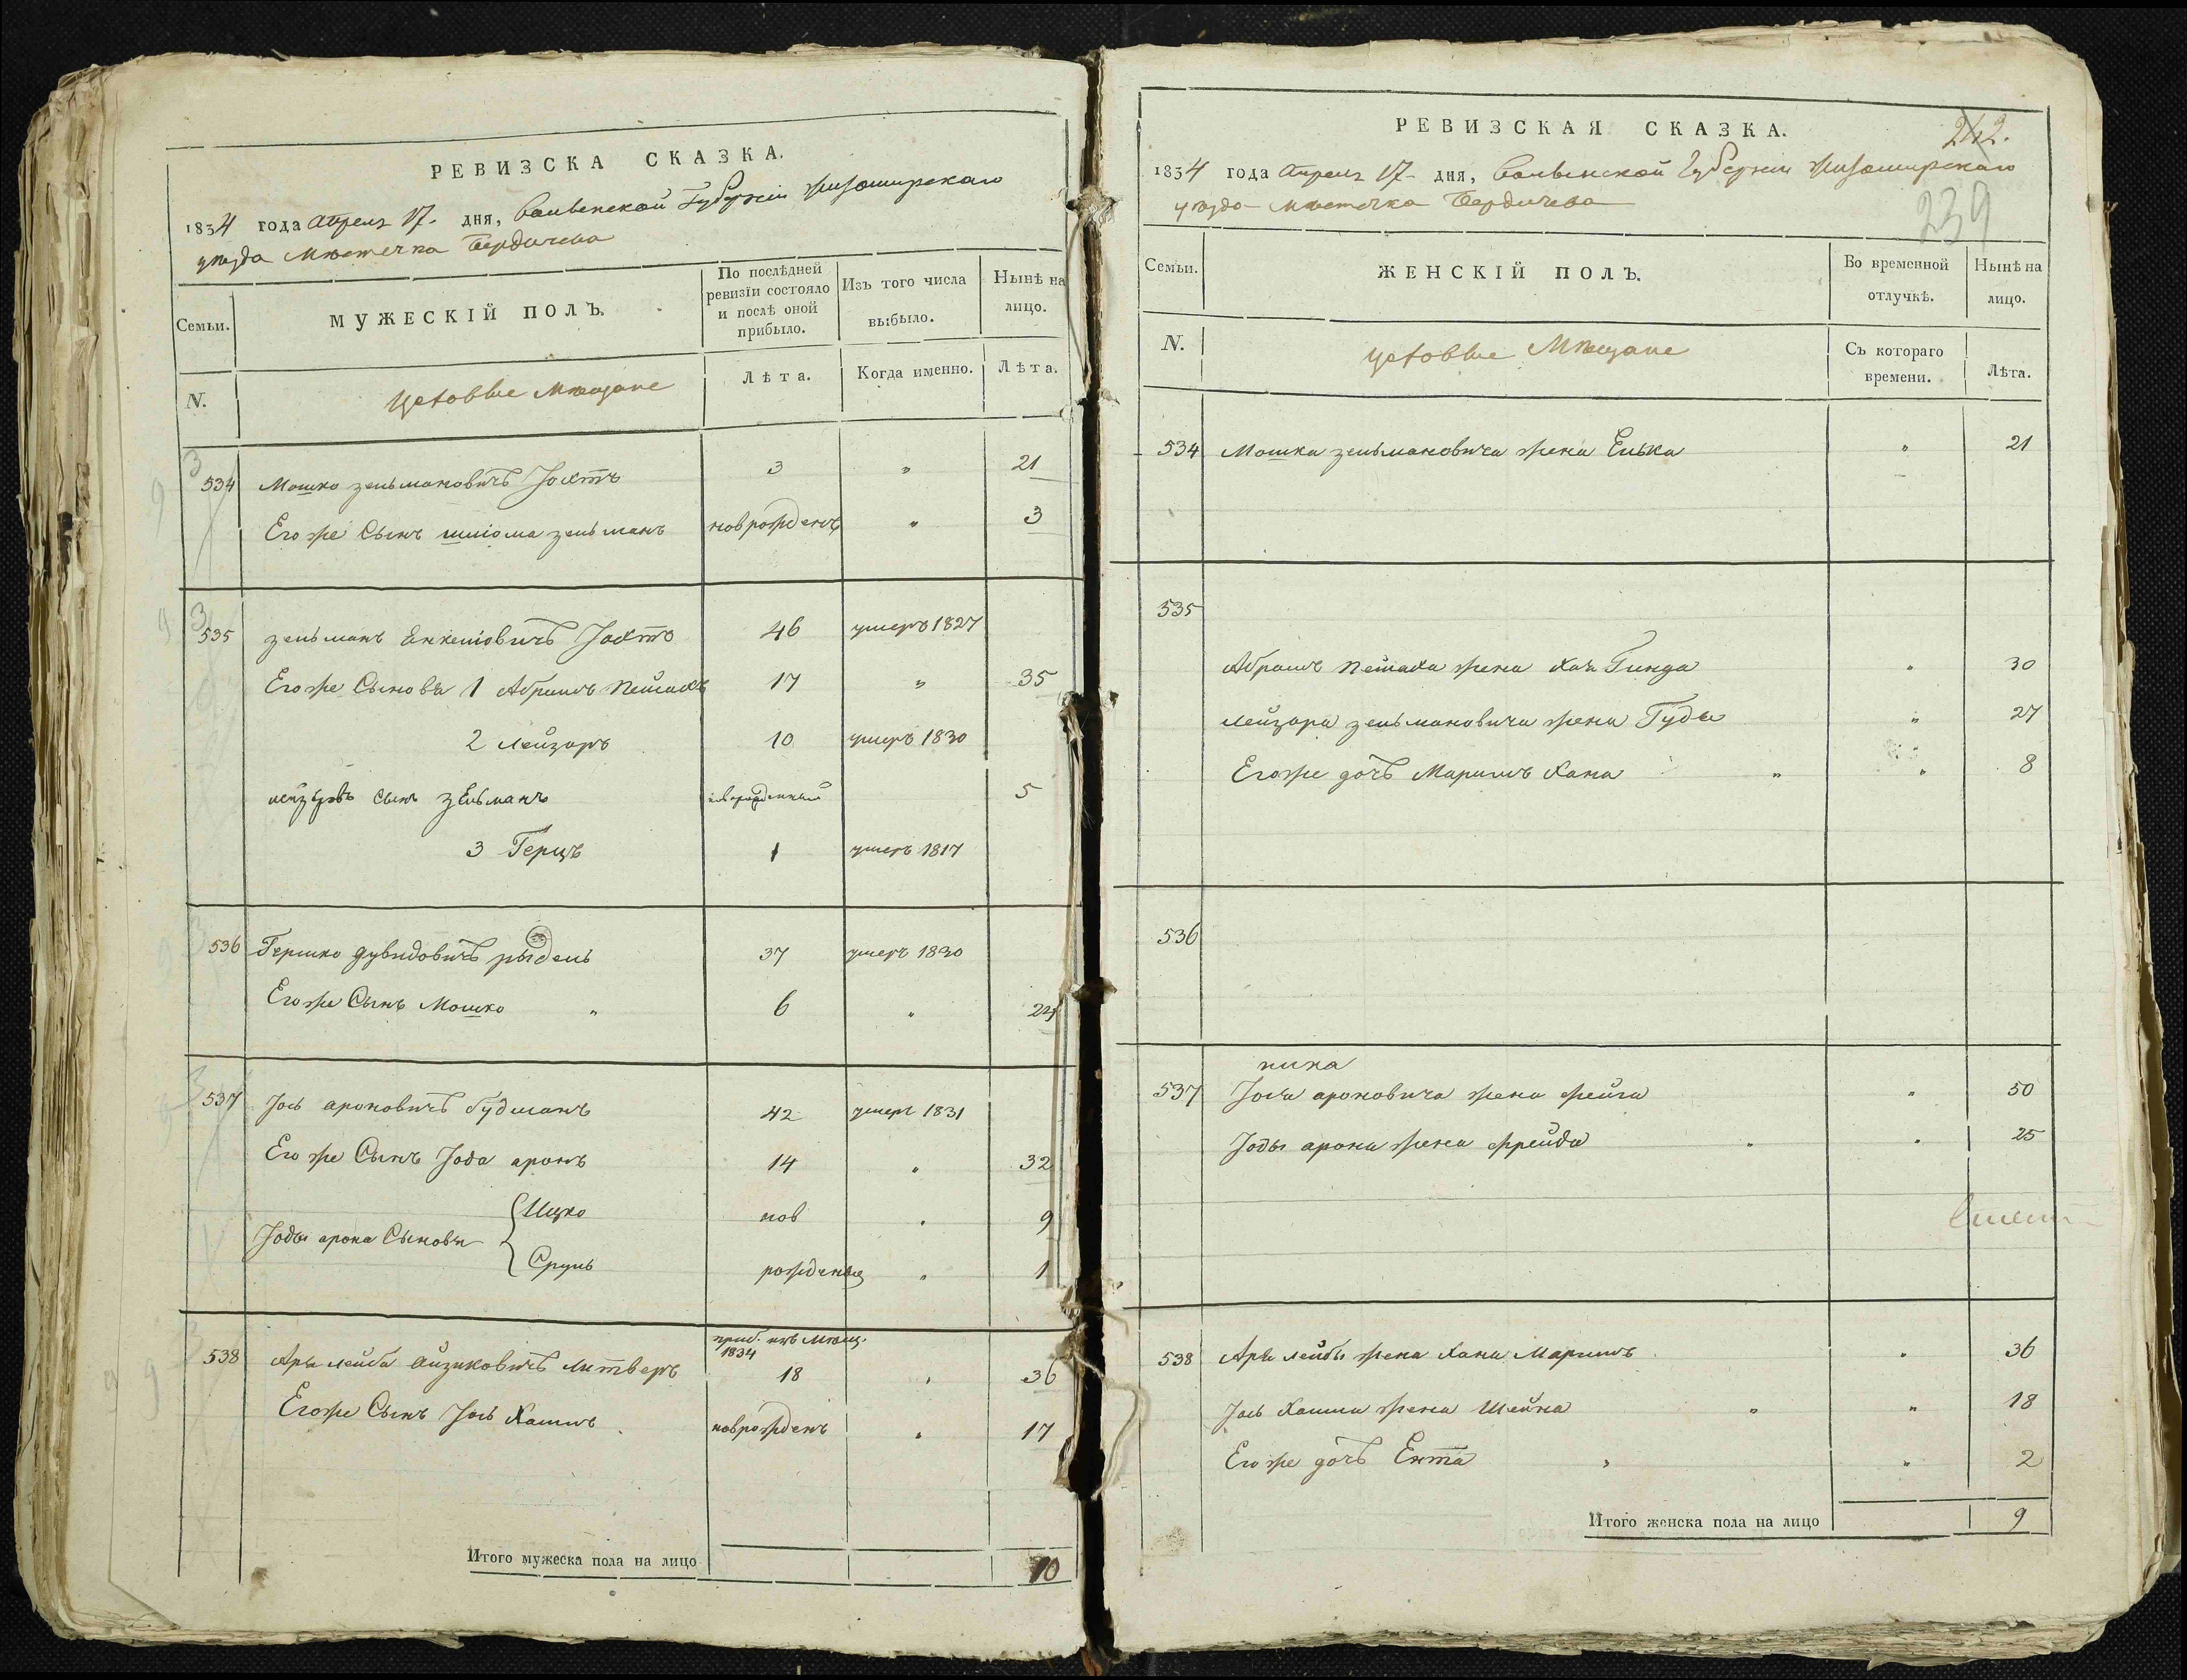 РЕВИЗСКА СКАЗКА.
1834 года Апреля 17. дня, Волынской Губернии Житомирского
уезда Местечка Бердичева
Семьи.
МУЖЕСКІЙ ПОЛЪ.
По послѣдней ревизіи состояло и послѣ оной прибыло.
Изъ того числа выбыло.
Нынѣ на лицо.
N.
Цеховые Мещане
Лѣта.
Когда именно.
Лѣта.
534 Мошко Зельмановичъ 3 " 21
Его же Сынъ Шлiома Зельманъ новрожденъ " 3
535 Зельманъ Янкелiовичъ 46 умеръ 1827
Его же Сыновья 1 Абрамъ Пейсахъ 17 " 35
2 Лейзоръ 10 умеръ 1830
сынъ Зельманъ новорожденный 5
3 Герцъ 1 умеръ 1817
536 Гершко Дувидовичъ Рыдель 37 умеръ 1830
Его же Сынъ Мошко " 6 "
537 Іось Ароновичъ Гудманъ 42 умеръ 1831
Его же Сынъ Іода Аронъ 14 " 32
Іоды Арона Сыновья Ицко нов " 9
Сруль рожденые " 1
приб. изъ Мещ. 1834
538 Арья Лейба Айзиковичъ Литверъ 18 " 36
Его же Сынъ Іось Хаимъ новрожденъ " 17
Итого мужеска пола на лицо 10
РЕВИЗСКАЯ СКАЗКА.
242.
1834 года Апреля 17 дня, Волынской Губернии Житомирского
уезда Местечка Бердичева
239
Семьи.
ЖЕНСКІЙ ПОЛЪ.
Во временной отлучкѣ.
Нынѣ на лицо.
N.
Цеховые Мещане
Съ котораго времени.
Лѣта.
534 Мошка Зельмановича жена Елька " 21
535
Абрамъ Пейсаха жена Хая Гинда " 30
Лейзора Зельмановича жена Гудя " 27
Его же дочь Маримъ Хана " " 8
536
537 Іося Ароновича жена Фейга " 50
Іоды Арона жена Фрейда " " 25
538 Арья Лейбы жена Хана Маримъ " 36
Іось Хаима жена Шейна " " 18
Его же дочь Ента " " 2
Итого женска пола на лицо 9